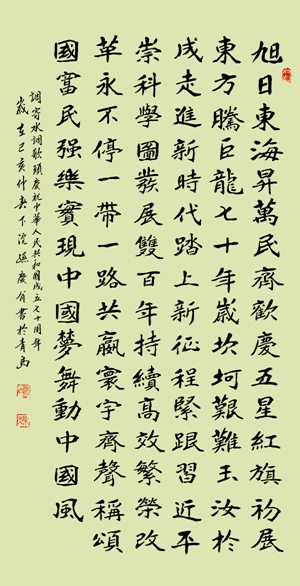 旭日東海昇萬民齊歡慶五星紅旗初展
東方騰巨龍七十年歲坎坷艱難玉汝於
成走進新時代踏上新征程緊跟習近平
崇科學圖發展雙百年持續高效繁榮改
革永不停一帶一路共贏寰宇齊聲稱頌
國富民强樂實現中國夢舞動中國風
調寄水調歌頭慶祝中華人民共和國成立七十周年
歲在己亥仲春下浣孫慶有書於青島